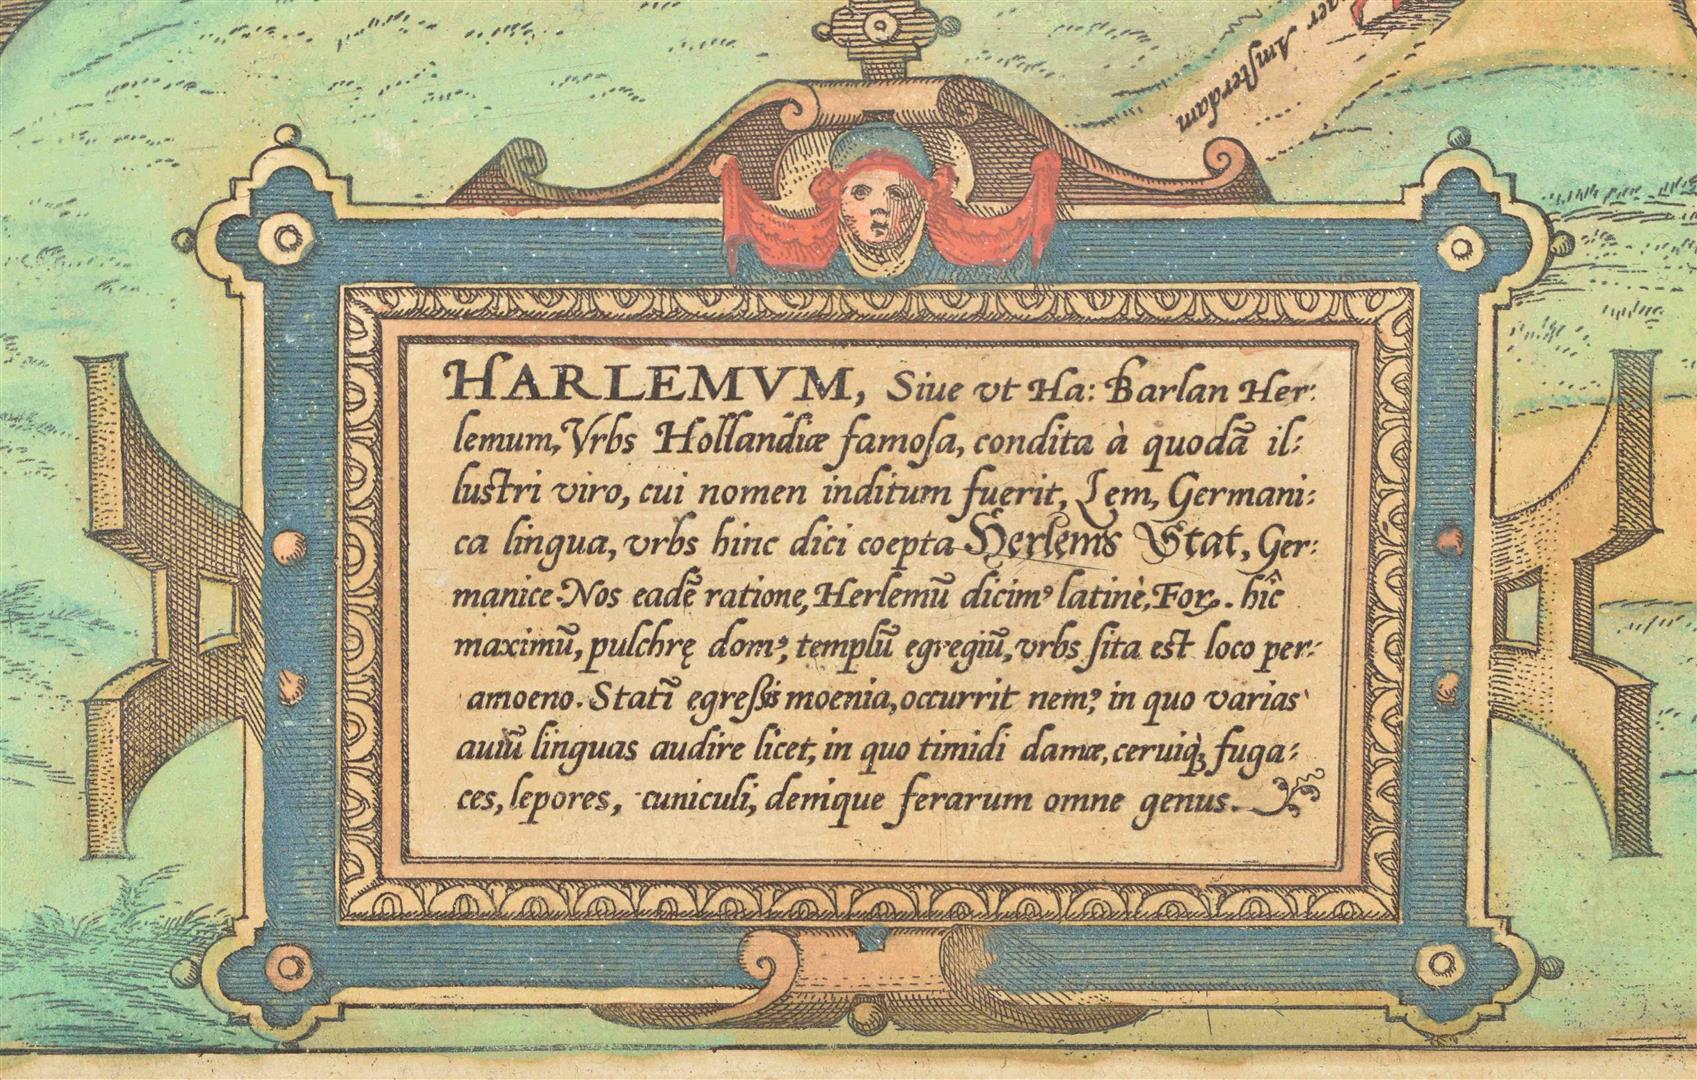 naer Amsterdam
HARLEMVM, Siue vt Ha: Barlan Her:
lemum, Vrbs Hollandiæ famosa, condita à quodã il:
lustri viro, cui nomen inditum fuerit, Lem, Germani:
ca lingua, vrbs hinc dici coepta Herlems Stat, Ger:
manice. Nos eadẽ ratione, Herlemũ dicimꝰ latinè, Forꝝ. hîc
maximũ, pulchrę domꝰ, templũ egregiũ, vrbs sita est loco per:
amoeno. Statĩ egressis moenia, occurrit nemꝰ, in quo varias
auiũ linguas audire licet, in quo timidi damæ, ceruiq̀ꝫ fuga:
ces, lepores, cuniculi, denique ferarum omne genus.